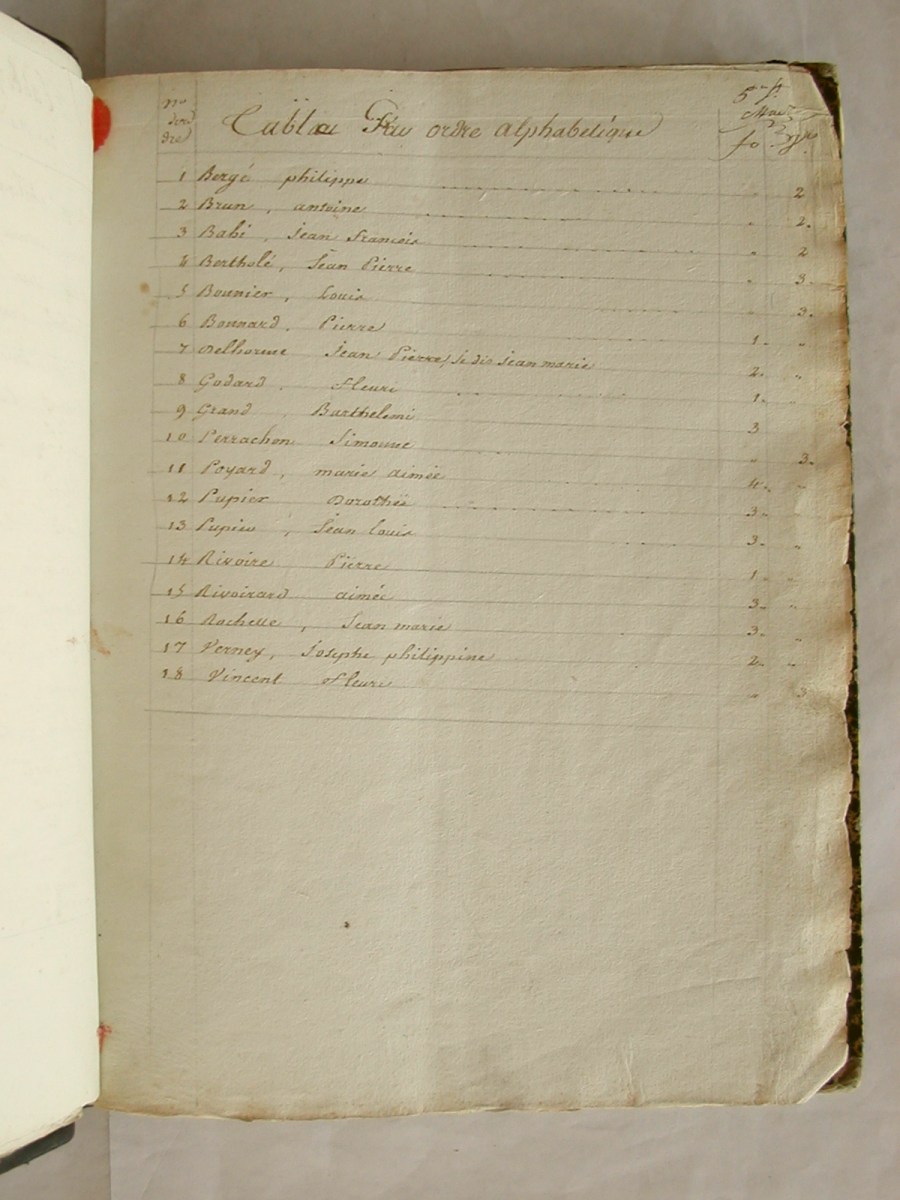 no dor dre
Tableau Par ordre alphabetique
fo
1 Bergé philippe " 2
2 Brun, antoine " 2.
3 Babé, jean francois " 2
4 Bertholé, jean Pierre " 3.
5 Bounier, Louis " 3.
6 Bonnard, Pierre 1. "
7 Delhorme jean Pierre, si dit jean marie 2. "
8 Godard, fleuri 1. "
9 Grand, Barthelemi 3
10 Perrachon Simonne " 3.
11 Poyard, marie aimée 4. "
12 Pupier Dorothée 3.
13 Pupier, jean Louis 3. "
14 Rivoire Pierre 1. "
15 Rivoirard aimée 3. "
16 Rochette, jean marie 3. "
17 Verney, josephe philippine 2. "
18 Vincent fleuri " 3